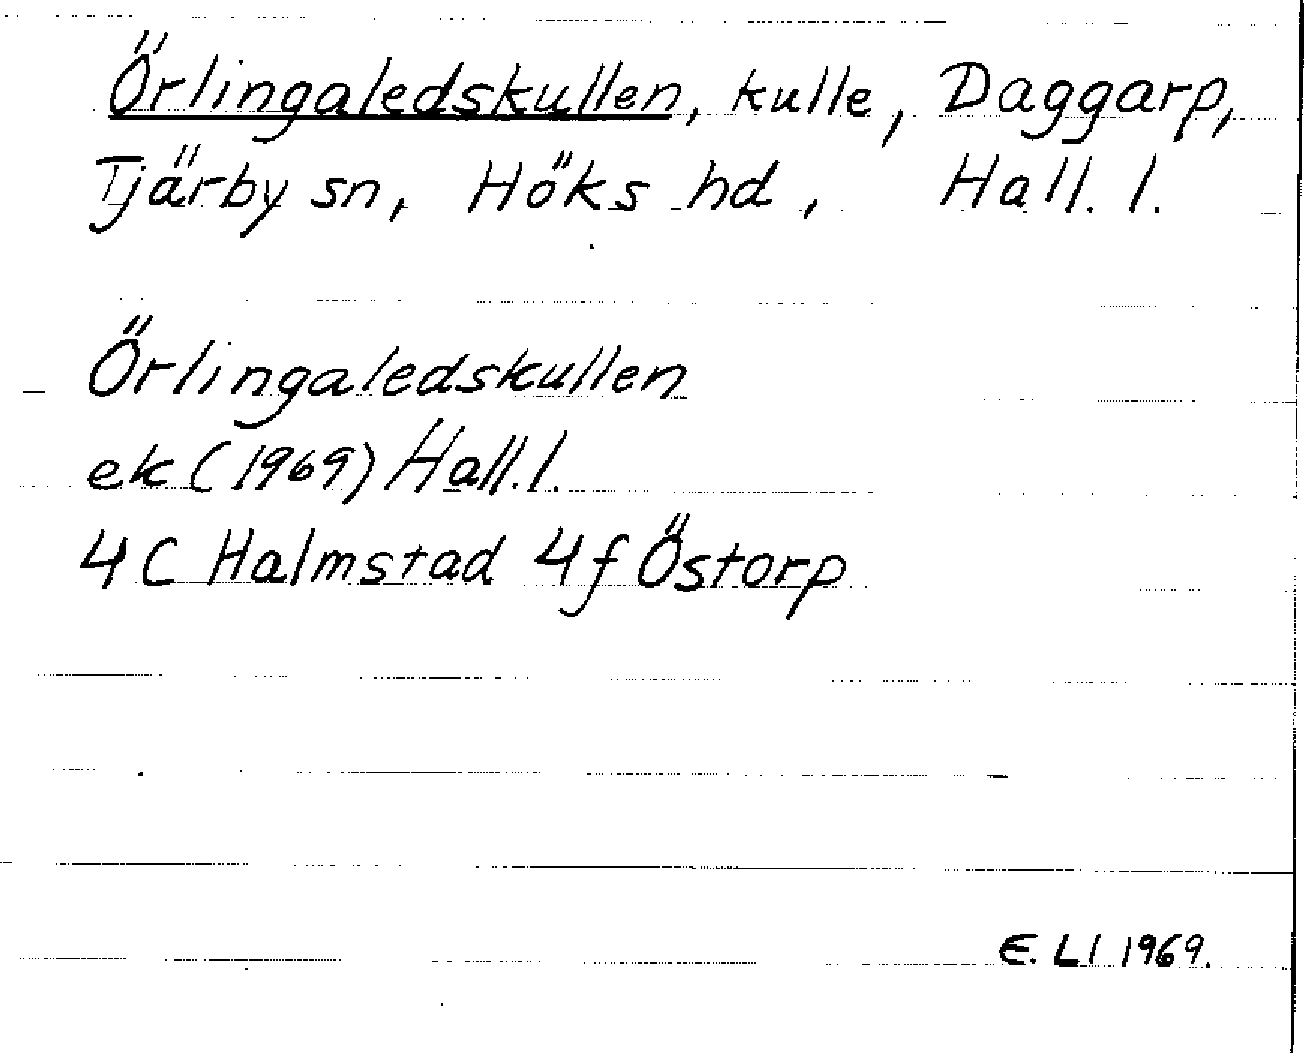 Örlingaledskullen, kulle, Daggarp,
Tjärby sn, Höks hd, Hall. l.
Örlingaledskullen
ek (1969) Hall. l.
4C Halmstad 4f Östorp
E. Ll 1969.